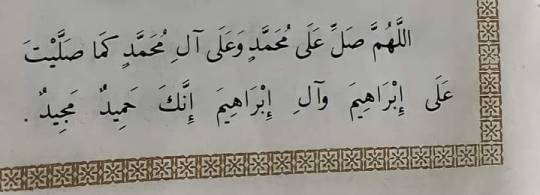 اللَّهُمَّ صَلِّ عَلَى مُحَمَّدٍ وَعَلَى آلِ مُحَمَّدٍ كَمَا صَلَّيْتَ
عَلَى إِبْرَاهِيمَ وآلِ إِبْرَاهِيمَ إِنَّكَ حَمِيدٌ مَجِيدٌ .